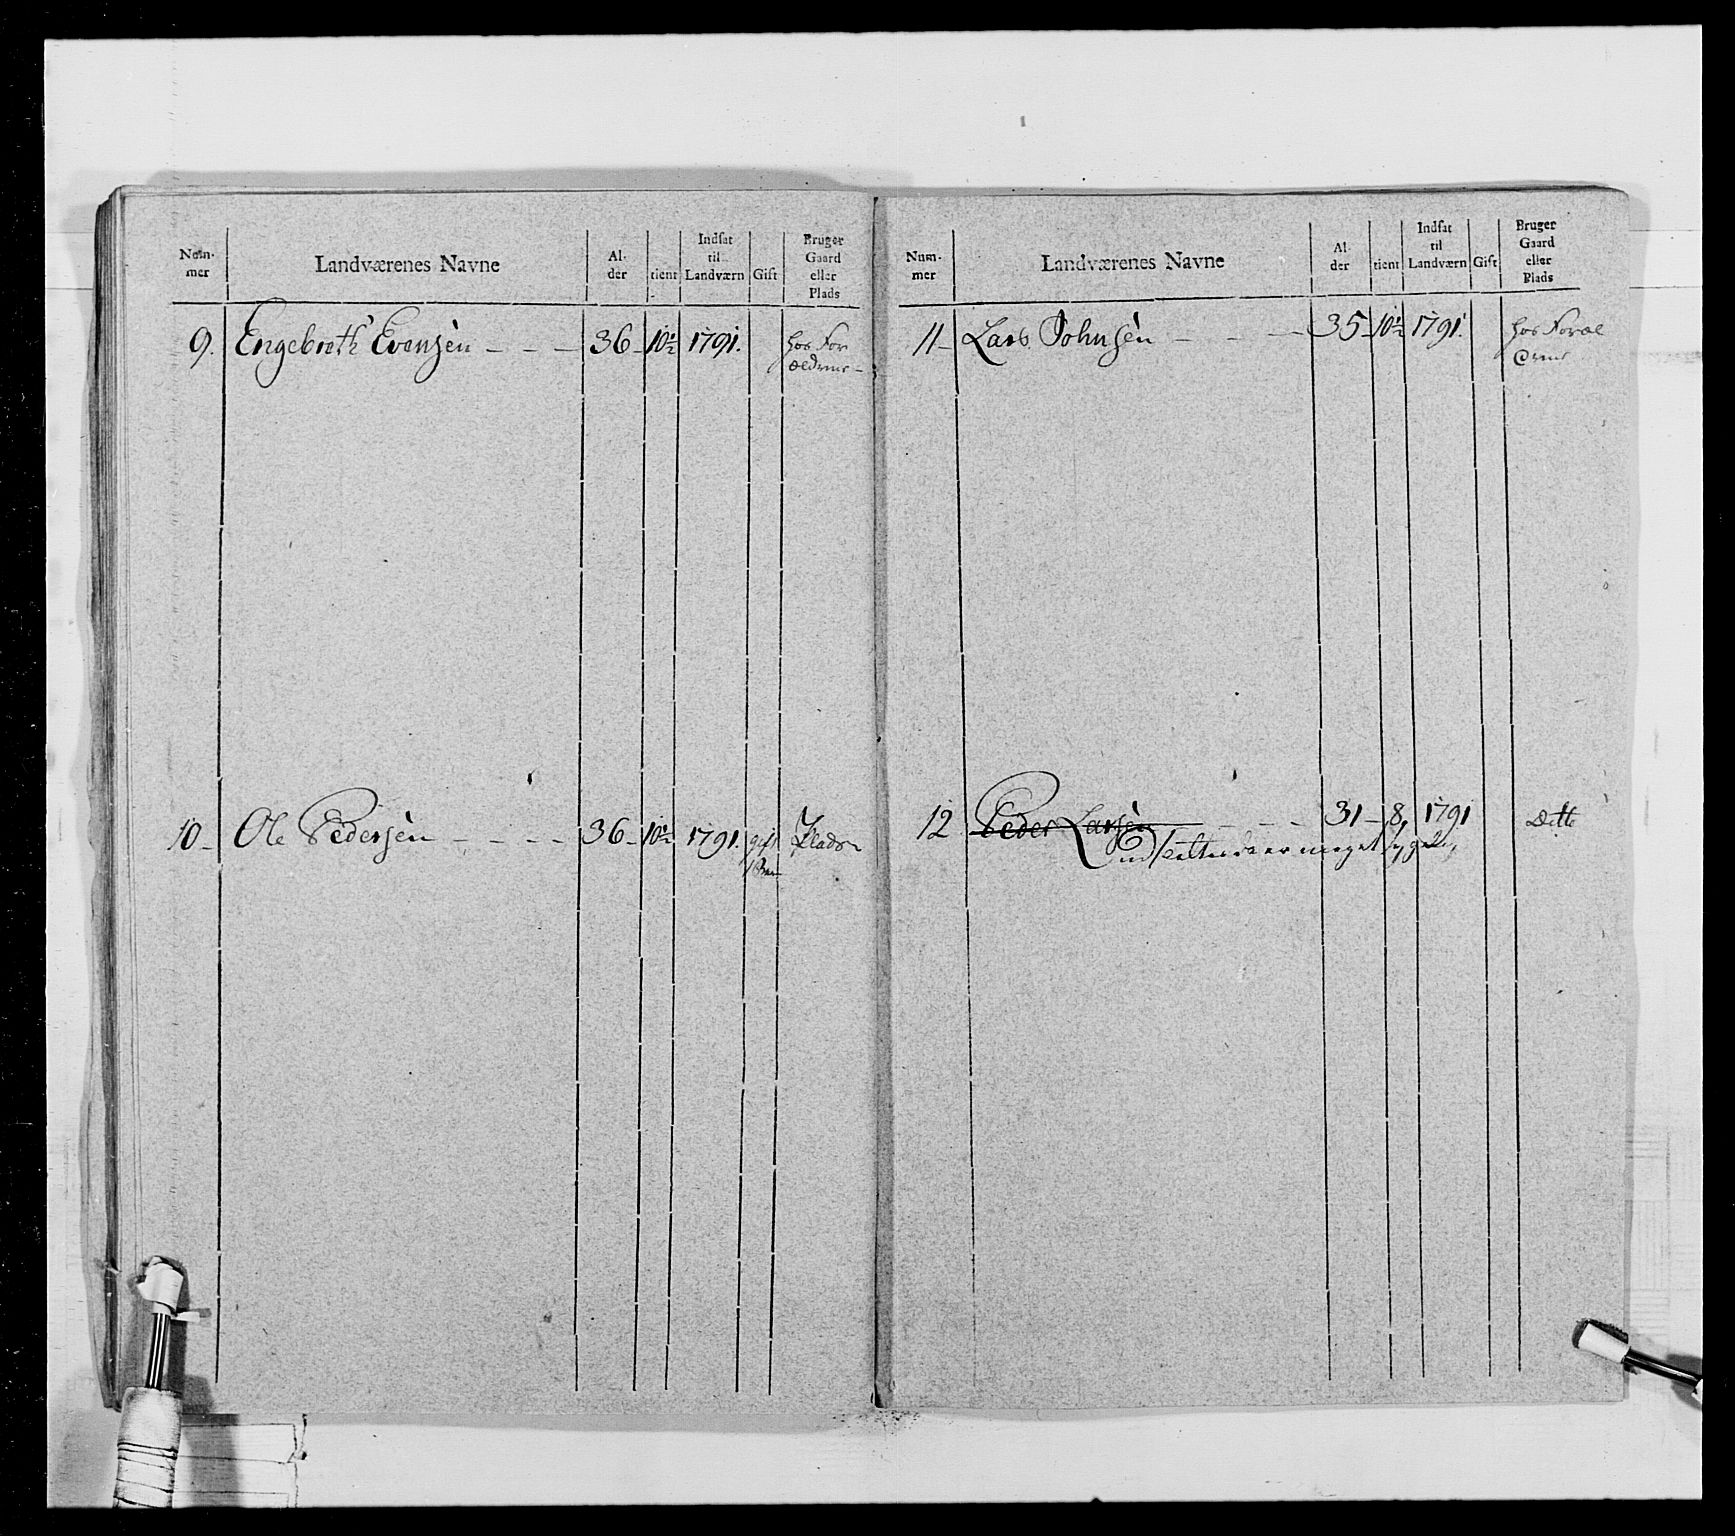 Num-
mer
Landværenes Navne
Al-
der
tient
Indsat
til
Landværn
Gift
Bruger
Gaard
eller
Plads
9. Engebreth Evensen - - - 36 - 10½ 1791. hos For
ældrene -
10 - Ole Pedersen - - - - 36 - 10½ 1791. gift Plads
1 Barn
Num-
mer
Landværenes Navne
Al-
der
tient
Indsat
til
Landværn
Gift
Bruger
Gaard
eller
Plads
11 - Lars Johnsen - - - 35 - 10½ 1791. hos Foræl
drene
12 Peder Larsen - - - 31 - 8, 1791 Ditto
da er meget